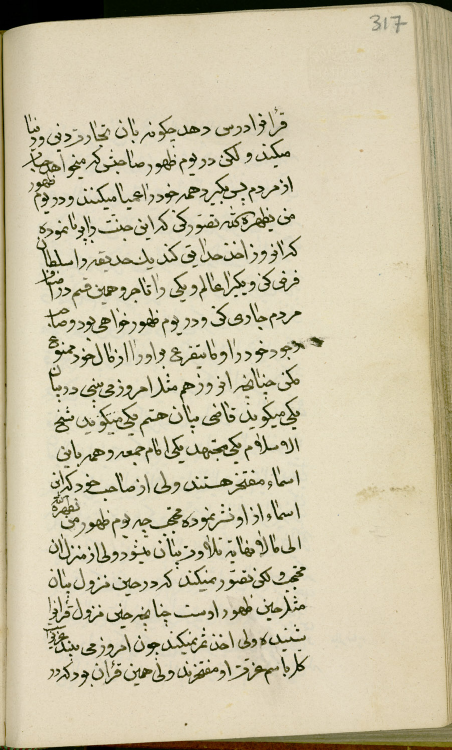 317
قرآنرا درس دهد چگونه بآن تجارت دینی و دنیا
میکند ولکن در یوم ظهور صاحبش که میخواهد
از مردم پس بگیرد همه خود را میکنند و در یوم
من یظهره الله تصور کن که این جنت را بنا نموده
که آنروز اخذ کند یک حدیقه را سلطان
فرض کن و یکی را عالم و یکی را تاجر و همین قسم در
مردم جاری کن و در یوم ظهور خواهی بود و صاحب
وجود خود را و ما یتفرع بر او را از مال خود ممنوع
کنی چنانچه امروز هم مثل امروز می بینی در بیان
یکی میگوید قاضی بیان هستم یکی میگوید شیخ
الاسلام یکی مجتهد یکی امام جمعه و همه باین
اسماء مفتخر هستند ولی از صاحب خود که این
اسماء از او نشر نموده محتجب چه یوم ظهور من یظهره الله
الی مالا نهایة تلاوت بیان میشود ولی از منزل آن
محتجب ولکن تصور نمیکند که در حین نزول بیان
مثل حین ظهور اوست چنانچه حین نزول قرآنرا
شنیده ولی اخذ ثمر نمیکند چون امروز می بیند
کل باسم عزت او مفتخرند ولی همین قرآن بود که در